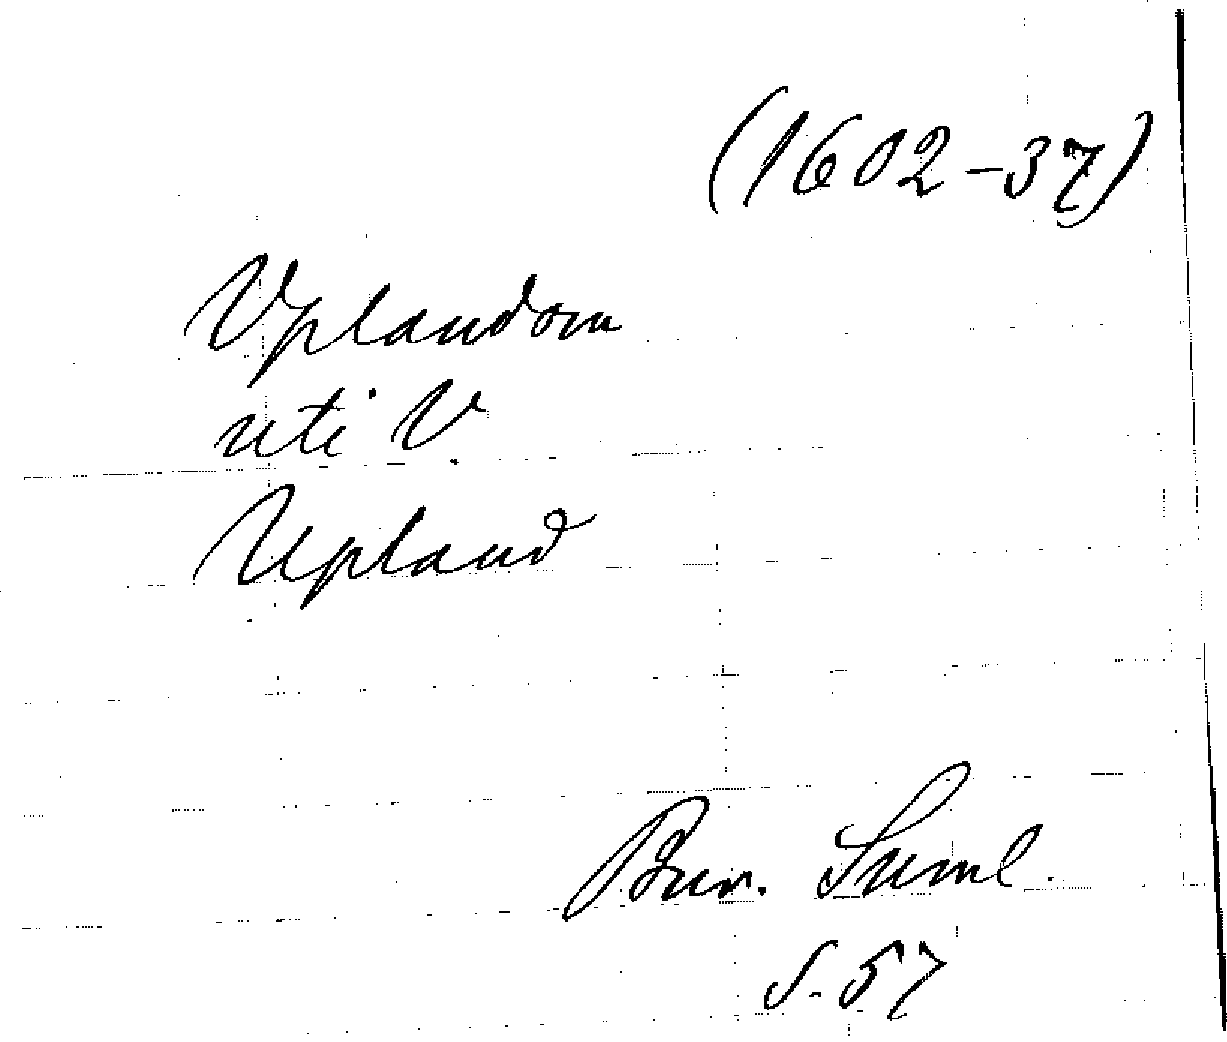 (1602-37)
Vplandom
uti V.
Upland
Bur. Suml.
s. 57